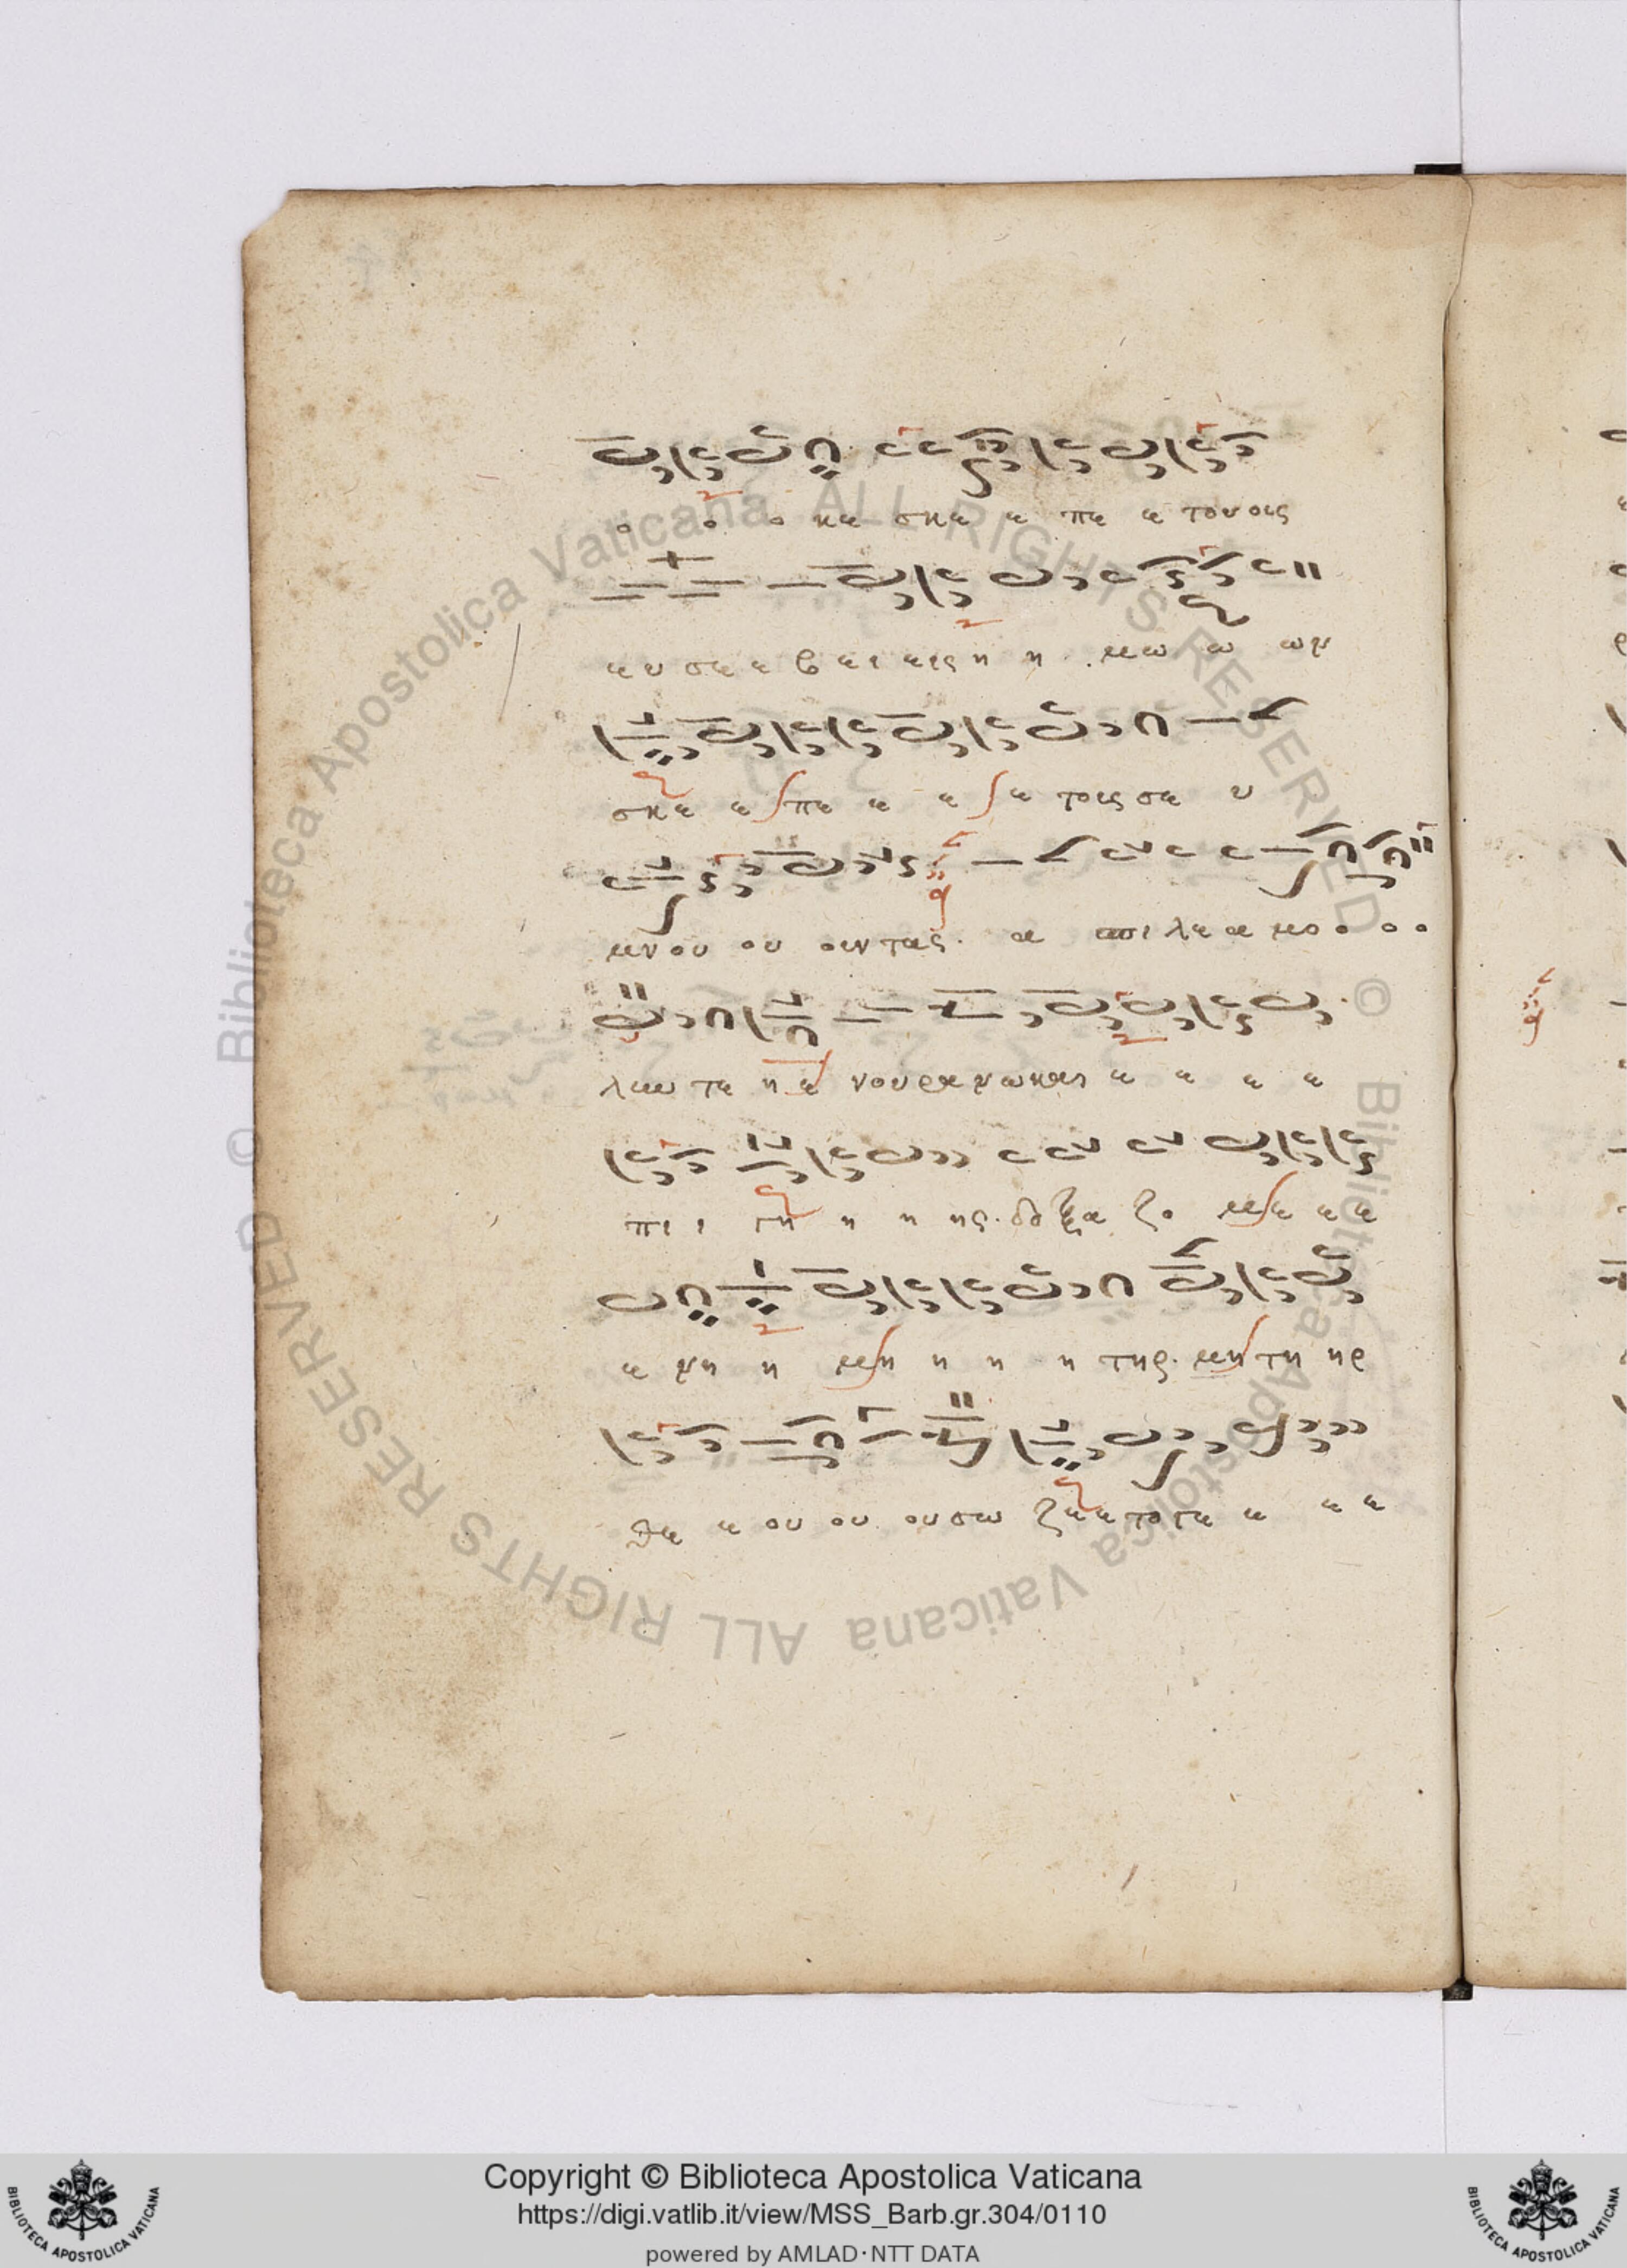 ο ο ο κε σκε ε πε ε τουσις
ευ σε ε β ει εις η η μω ω ων
σκε ε πε ε ε ε τοις σε υ
μνου ου ουντας. α απι λε α μο ο ο ο
λαω τε η ε νουρανωκαι ε ε ε ε
πι ι τη η η ης. δο ξα ζο με ε ε ε
ε νη η μη η η η τηρ. μη τη ηρ
θε ε ου ου ου σω ζε ε το τε ε ε ε
© Biblioteca Apostolica Vaticana ALL RIGHTS RESERVED © Biblioteca Apostolica Vaticana ALL RIGHTS RESERVED
Copyright © Biblioteca Apostolica Vaticana
https://digi.vatlib.it/view/MSS_Barb.gr.304/0110
powered by AMLAD·NTT DATA
BIBLIOTECA APOSTOLICA VATICANA
BIBLIOTECA APOSTOLICA VATICANA